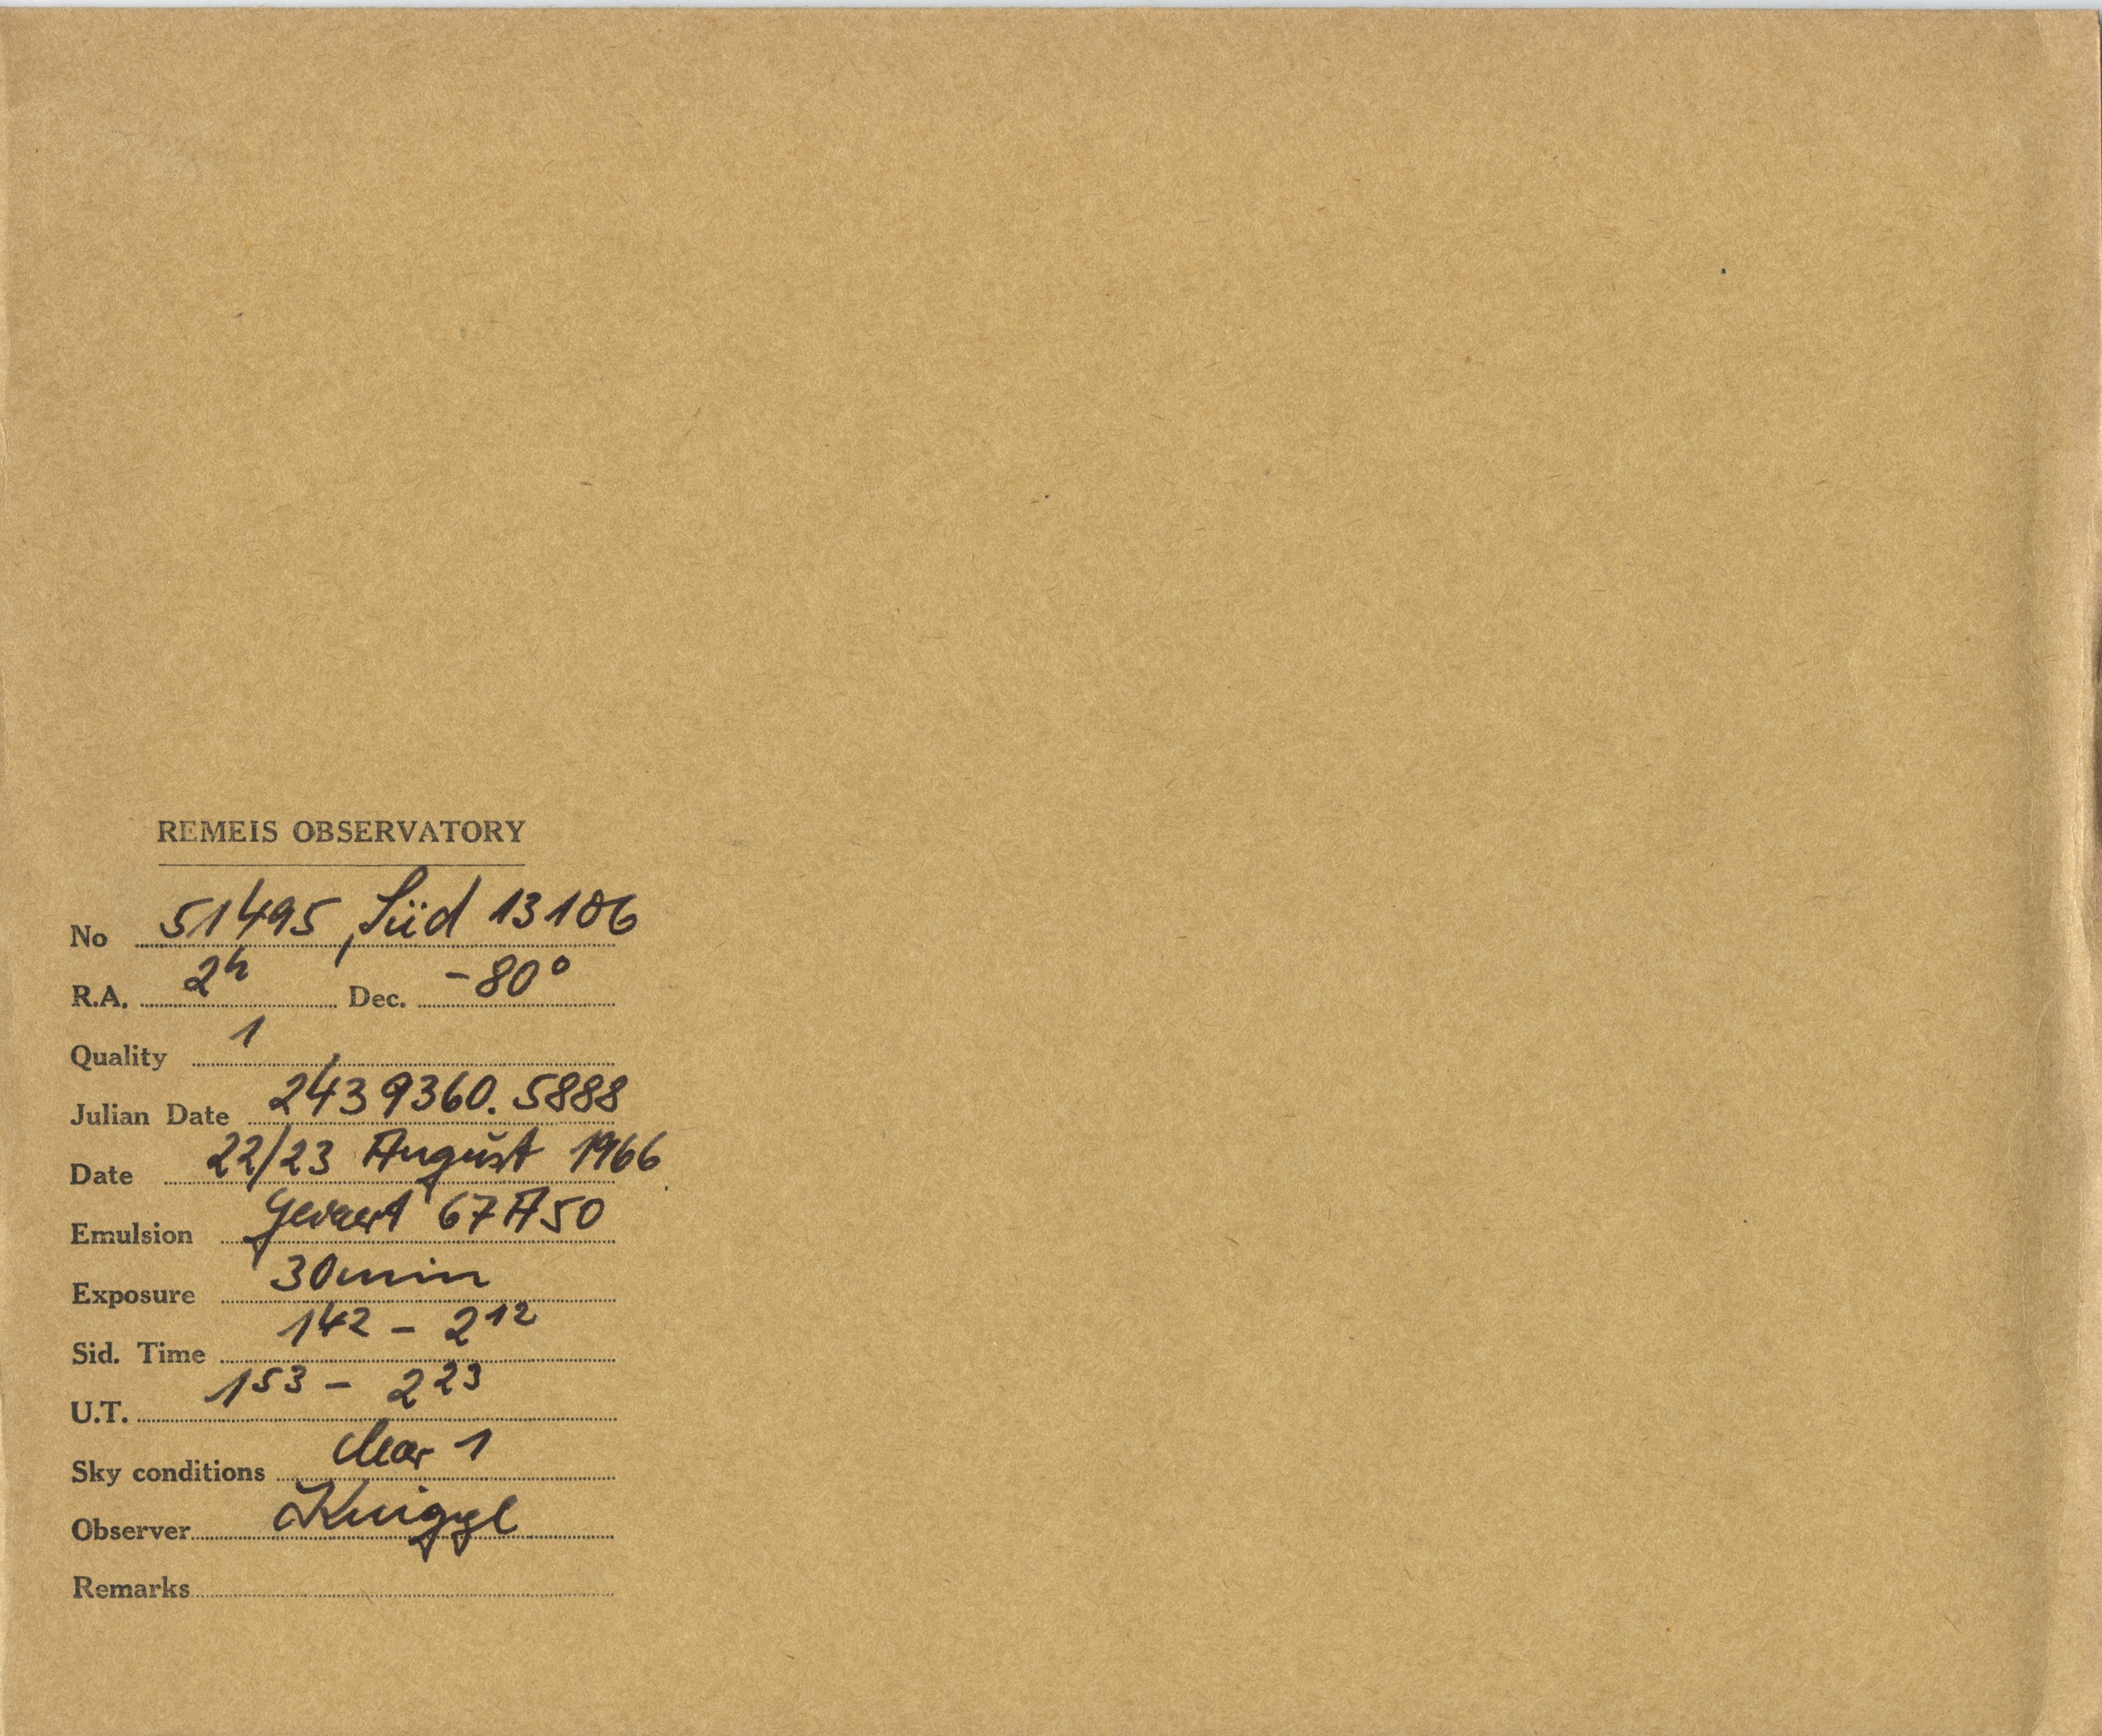 REMEIS OBSERVATORY
No 51495, Süd 13106
R.A. 2h Dec. -80°
Quality 1
Julian Date 2439360.5888
Date 22/23 August 1966
Emulsion Gevaert 67A50
Exposure 30min
Sid. Time 1 42 - 2 12
U.T. 1 53 - 2 23
Sky conditions clear 1
Observer Knigge
Remarks